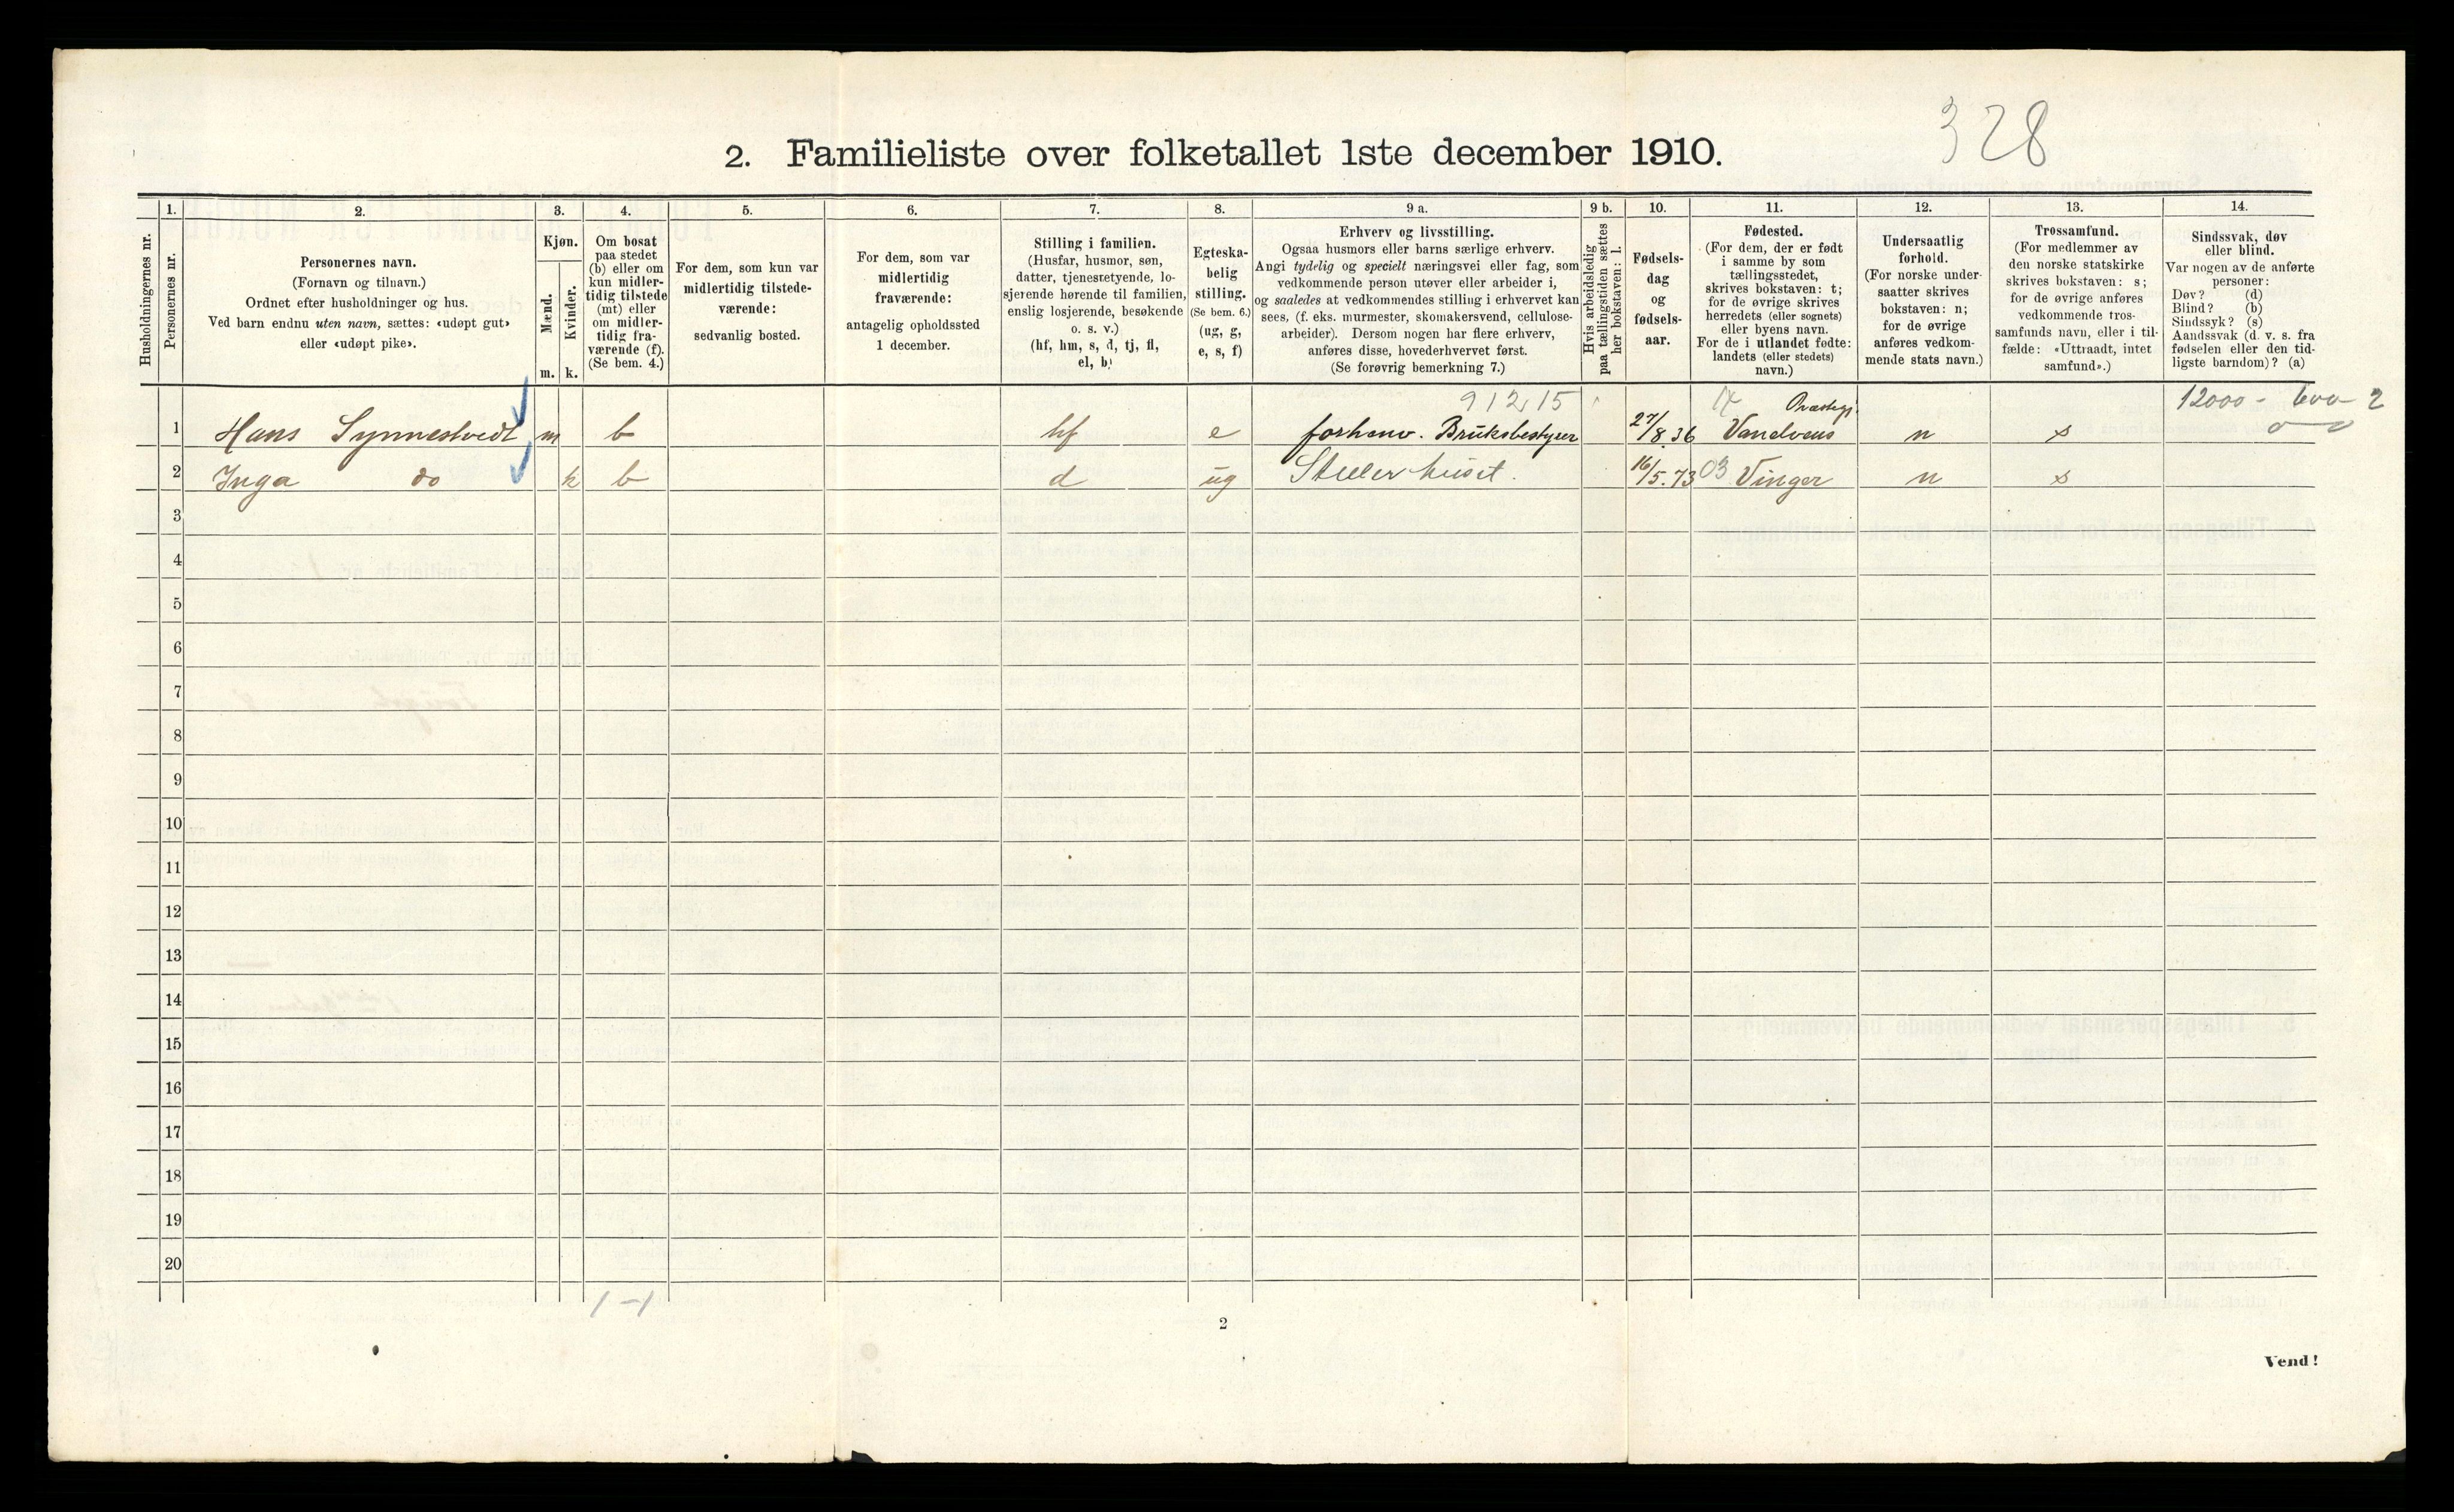 328
2. Familieliste over folketallet 1ste december 1910.
1. 2. 3. 4. 5. 6. 7. 8. 9 a. 9 b. 10. 11. 12. 13. 14.
Husholdningernes nr.
Personernes nr.
Personernes navn.
(Fornavn og tilnavn.)
Ordnet efter husholdninger og hus.
Ved barn endnu uten navn, sættes: «udøpt gut»
eller «udøpt pike».
Kjøn.
Mænd.
Kvinder.
m. k.
Om bosat
paa stedet
(b) eller om
kun midler-
tidig tilstede
(mt) eller
om midler-
tidig fra-
værende (f).
(Se bem. 4.)
For dem, som kun var
midlertidig tilstede-
værende:
sedvanlig bosted.
For dem, som var
midlertidig
fraværende:
antagelig opholdssted
1 december.
Stilling i familien.
(Husfar, husmor, søn,
datter, tjenestetyende, lo-
sjerende hørende til familien,
enslig losjerende, besøkende
o. s. v.)
(hf, hm, s, d, tj, fl,
el, b)
Egteska-
belig
stilling.
(Se bem. 6.)
(ug, g,
e, s, f)
Erhverv og livsstilling.
Ogsaa husmors eller barns særlige erhverv.
Angi tydelig og specielt næringsvei eller fag, som
vedkommende person utøver eller arbeider i,
og saaledes at vedkommendes stilling i erhvervet kan
sees, (f. eks. murmester, skomakersvend, cellulose-
arbeider). Dersom nogen har flere erhverv,
anføres disse, hovederhvervet først.
(Se forøvrig bemerkning 7.)
Hvis arbeidsledig
paa tællingstiden sættes
her bokstaven: l.
Fødsels-
dag
og
fødsels-
aar.
Fødested.
(For dem, der er født
i samme by som
tællingsstedet,
skrives bokstaven: t;
for de øvrige skrives
herredets (eller sognets)
eller byens navn.
For de i utlandet fødte:
landets (eller stedets)
navn.)
Undersaatlig
forhold.
(For norske under-
saatter skrives
bokstaven: n;
for de øvrige
anføres vedkom-
mende stats navn.)
Trossamfund.
(For medlemmer av
den norske statskirke
skrives bokstaven: s;
for de øvrige anføres
vedkommende tros-
samfunds navn, eller i til-
fælde: «Uttraadt, intet
samfund».)
Sindssvak, døv
eller blind.
Var nogen av de anførte
personer:
Døv? (d)
Blind? (b)
Sindssyk? (s)
Aandssvak (d. v. s. fra
fødselen eller den tid-
ligste barndom)? (a)
91215 12000 - 600 - 2
1 Hans Synnestvedt m b hf e forhenv. Bruksbestyrer 27/8.36 Præstegj. n s
2 Inga do k b d ug Steller huset. 16/5.73 03 Vinger n s
3
4
5
6
7
8
9
10
11
12
13
14
15
16
17
18
19
20
1 - 1
2
Vend!